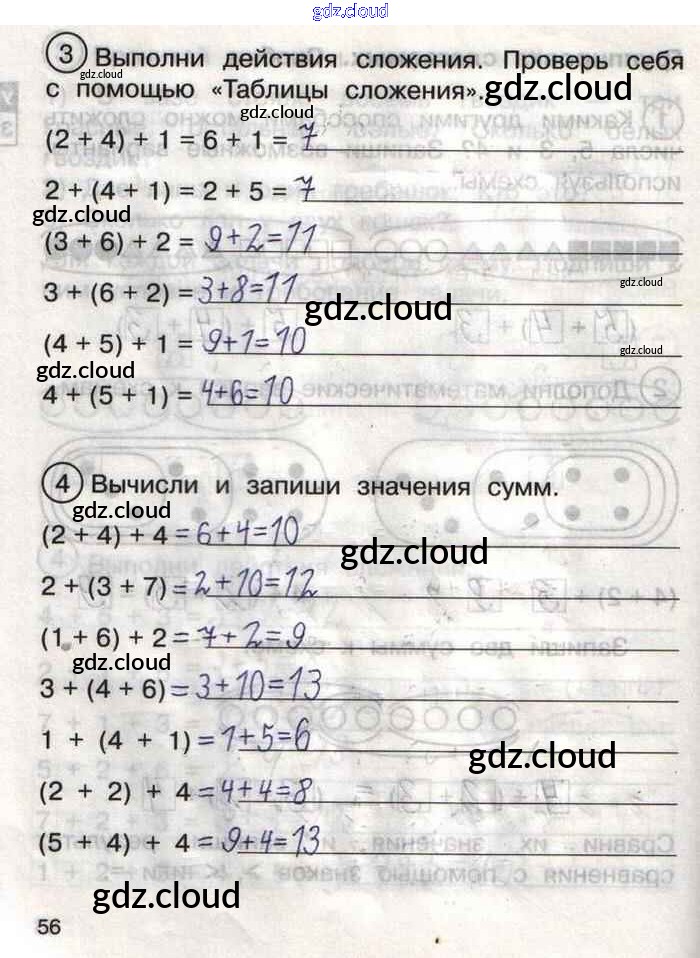 gdz.cloud
3 Выполни действия сложения. Проверь себя
gdz.cloud
с помощью «Таблицы сложения».
gdz.cloud
gdz.cloud
(2 + 4) + 1 = 6 + 1 = 7
2 + (4 + 1) = 2 + 5 = 7
gdz.cloud
(3 + 6) + 2 = 9+2=11
3 + (6 + 2) = 3+8=11
gdz.cloud
gdz.cloud
(4 + 5) + 1 = 9+1=10
gdz.cloud
gdz.cloud
4 + (5 + 1) = 4+6=10
4 Вычисли и запиши значения сумм.
gdz.cloud
(2 + 4) + 4 = 6+4=10
gdz.cloud
2 + (3 + 7) = 2+10=12
(1 + 6) + 2 = 7+2=9
gdz.cloud
3 + (4 + 6) = 3+10=13
1 + (4 + 1) = 1+5=6
gdz.cloud
(2 + 2) + 4 = 4+4=8
(5 + 4) + 4 = 9+4=13
gdz.cloud
56